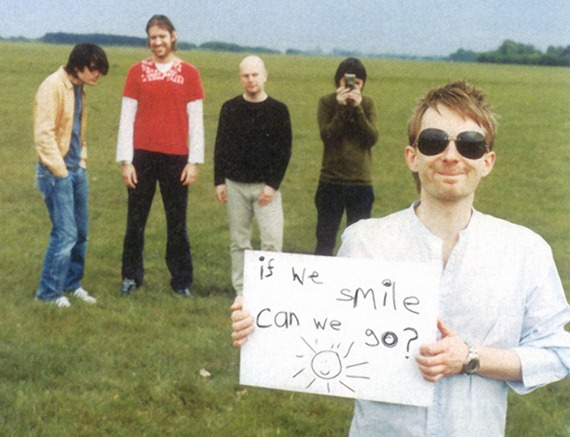 if we
smile
can we
go?